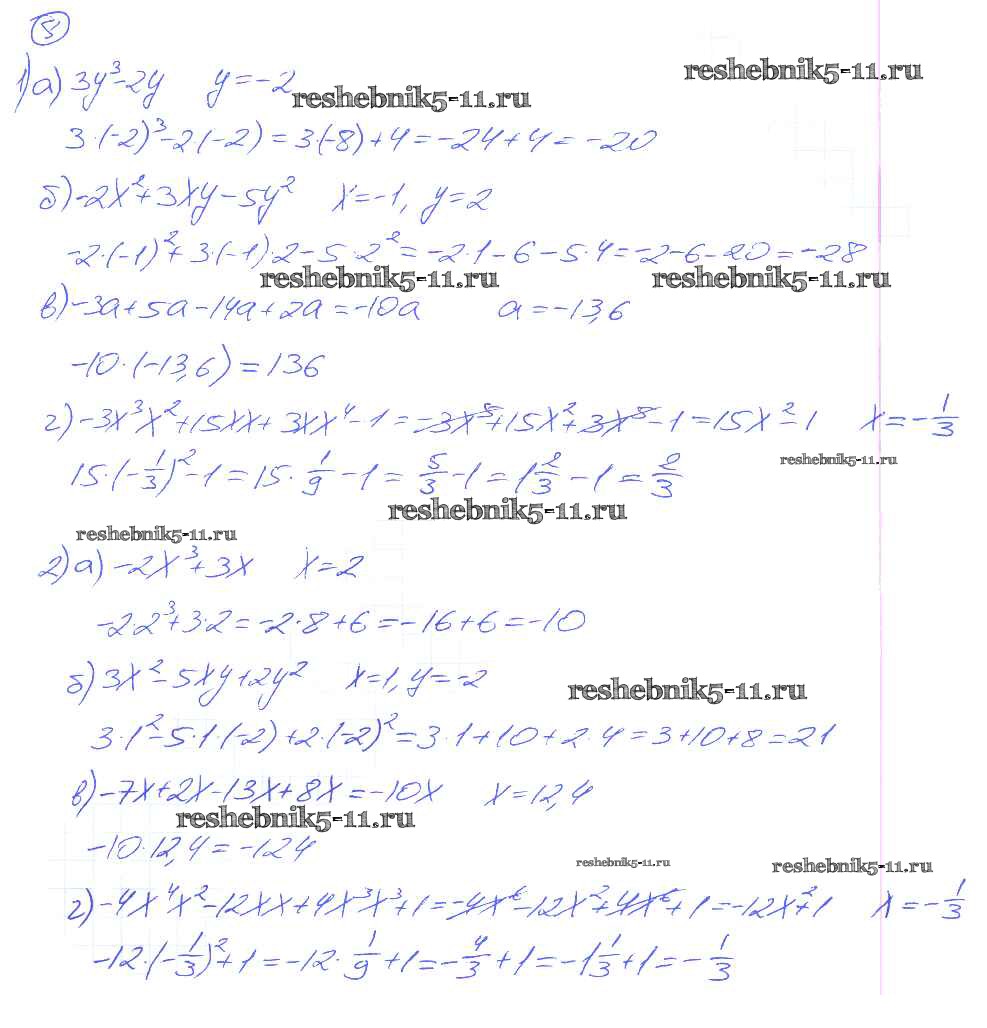 8
1) а) 3y³-2y y=-2
reshebnik5-11.ru
reshebnik5-11.ru
3·(-2)³-2(-2)=3·(-8)+4=-24+4=-20
б)-2x²+3xy-5y² x=-1, y=2
-2·(-1)²+3·(-1)·2-5·2²=-2·1-6-5·4=-2-6-20=-28
reshebnik5-11.ru reshebnik5-11.ru
в)-3a+5a-14a+2a=-10a a=-13,6
-10·(-13,6)=136
г)-3x³x²+15xx+3xx⁴-1=-3x⁵+15x²+3x⁵-1=15x²-1 x=-1/3
reshebnik5-11.ru
15·(-1/3)²-1=15·1/9-1=5/3-1=1 2/3-1=2/3
reshebnik5-11.ru
reshebnik5-11.ru
2) а)-2x³+3x x=2
-2·2³+3·2=-2·8+6=-16+6=-10
б) 3x²-5xy+2y² x=1, y=-2
reshebnik5-11.ru
3·1²-5·1·(-2)+2·(-2)²=3·1+10+2·4=3+10+8=21
в)-7x+2x-13x+8x=-10x x=12,4
reshebnik5-11.ru
-10·12,4=-124
reshebnik5-11.ru
reshebnik5-11.ru
г)-4x⁴x²-12xx+4x³x³+1=-4x⁶-12x²+4x⁶+1=-12x²+1 x=-1/3
-12·(-1/3)²+1=-12·1/9+1=-4/3+1=-1 1/3+1=-1/3